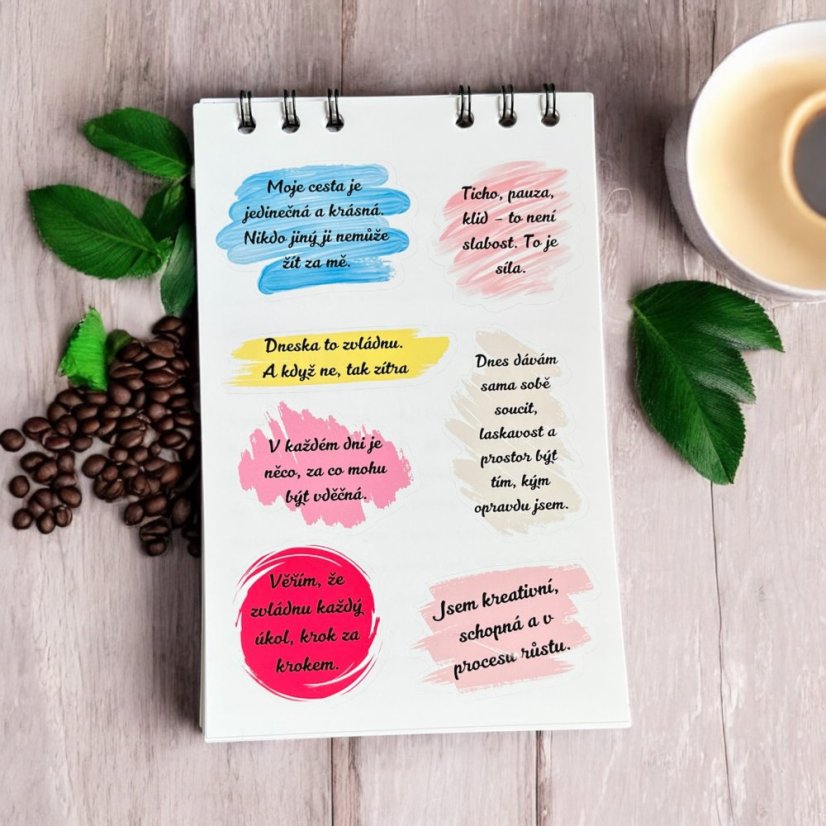 Moje cesta je
jedinečná a krásná.
Nikdo jiný ji nemůže
žít za mě.
Ticho, pauza,
klid – to není
slabost. To je
síla.
Dneska to zvládnu.
A když ne, tak zítra
Dnes dávám
sama sobě
soucit,
laskavost a
prostor být
tím, kým
opravdu jsem.
V každém dni je
něco, za co mohu
být vděčná.
Věřím, že
zvládnu každý
úkol, krok za
krokem.
Jsem kreativní,
schopná a v
procesu růstu.